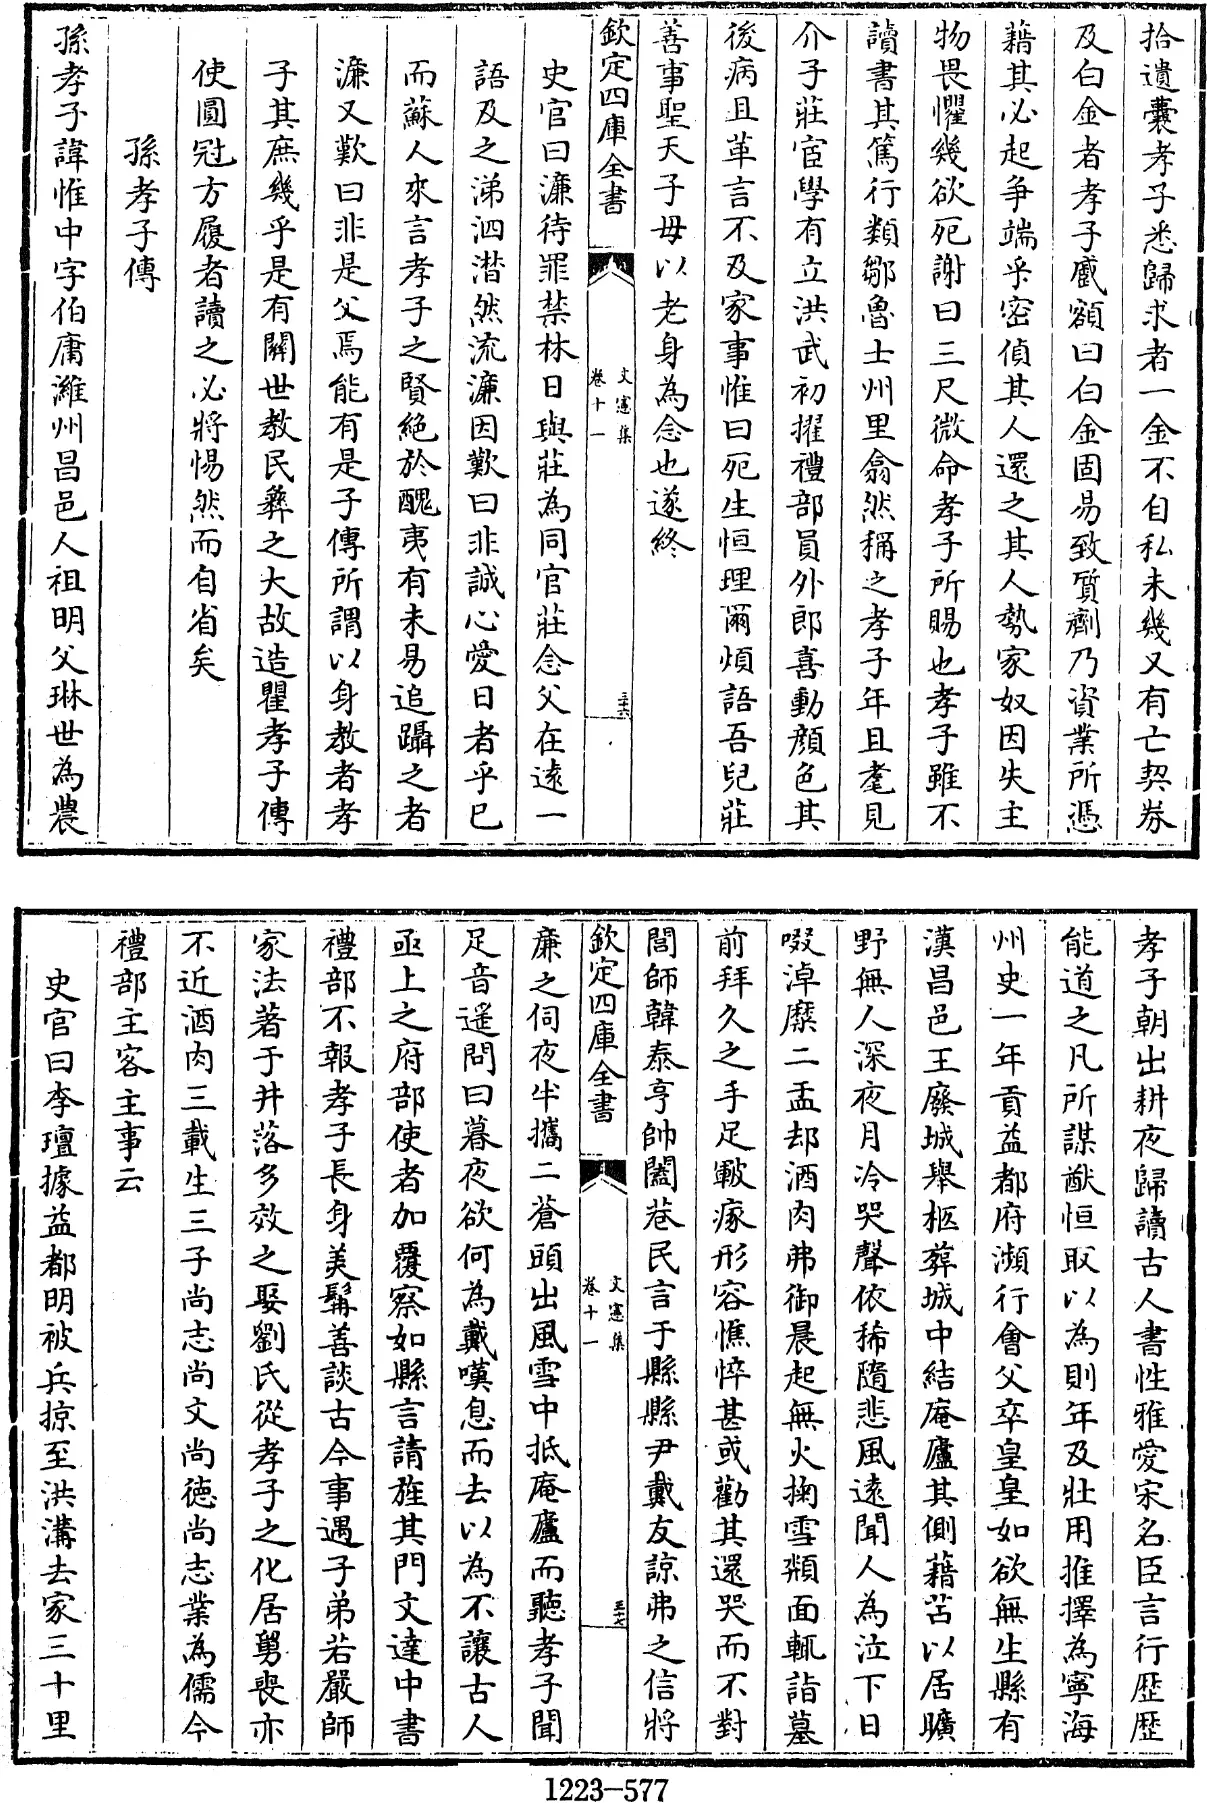 拾遺囊孝子悉歸求者一金不自私未幾又有亡契券
及白金者孝子慼額曰白金固易致質劑乃資業所憑
藉其必起爭端乎密偵其人還之其人勢家奴因失主
物畏懼幾欲死謝曰三尺微命孝子所賜也孝子雖不
讀書其篤行類鄒魯士州里翕然稱之孝子年且耄見
介子莊宦學有立洪武初擢禮部員外郎喜動顔色其
後病且革言不及家事惟曰死生恒理爾煩語吾兒莊
善事聖天子毋以老身為念也遂終
欽定四庫全書
文憲集
卷十一
三十六
史官曰濂待罪禁林日與莊為同官莊念父在遠一
語及之涕泗潸然流濂因歎曰非誠心愛日者乎已
而蘇人來言孝子之賢絶於醜夷有未易追躡之者
濂又歎曰非是父焉能有是子傳所謂以身教者孝
子其庶幾乎是有關世教民彝之大故造瞿孝子傳
使圓冠方履者讀之必將惕然而自省矣
孫孝子傳
孫孝子諱惟中字伯庸濰州昌邑人祖明父琳世為農
孝子朝出耕夜歸讀古人書性雅愛宋名臣言行歴歴
能道之凡所謀猷恒取以為則年及壯用推擇為寧海
州史一年貢益都府瀕行會父卒皇皇如欲無生縣有
漢昌邑王廢城舉柩葬城中結庵廬其側藉苫以居曠
野無人深夜月冷哭聲依稀隨悲風遠聞人為泣下日
啜淖糜二盂却酒肉弗御晨起無火掬雪頮面輒詣墓
前拜久之手足皸瘃形容憔悴甚或勸其還哭而不對
閭師韓泰亨帥闔巷民言于縣縣尹戴友諒弗之信將
欽定四庫全書
文憲集
卷十一
三十七
廉之伺夜半攜二蒼頭出風雪中抵庵廬而聽孝子聞
足音遙問曰暮夜欲何為戴嘆息而去以為不讓古人
亟上之府部使者加覆察如縣言請旌其門文達中書
禮部不報孝子長身美髯善談古今事遇子弟若嚴師
家法著于井落多效之娶劉氏從孝子之化居舅喪亦
不近酒肉三載生三子尚志尚文尚德尚志業為儒今
禮部主客主事云
史官曰李璮據益都明被兵掠至洪溝去家三十里
1223—577